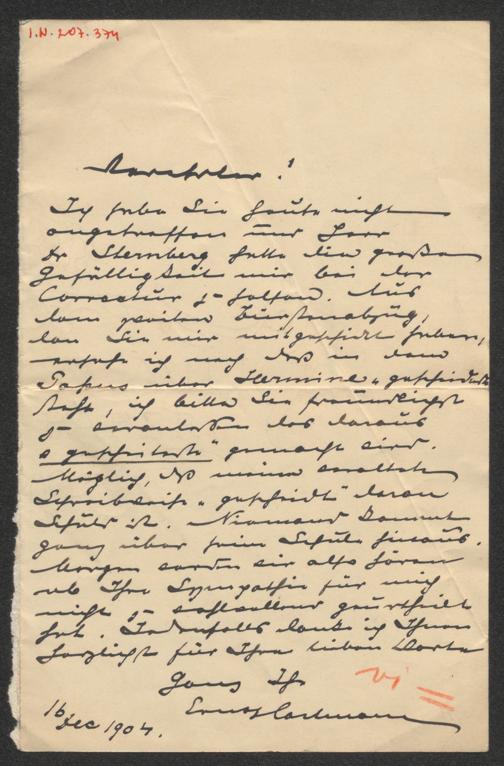 I.N. 207.374
Verehrter!
Ich habe Sie heute nicht
angetroffen und Herr
Dr Sternberg hatte die große
Gefälligkeit mir bei der
Correctur z helfen. Aus
dem zweiten Bürstenabzug,
den Sie mir mitgeschickt haben,
ersehe ich noch daß in dem
Passus über Hermine „gescheidteste
steht, ich bitte Sie freundlichst
z veranlassen das daraus
„gescheiteste" gemacht wird.
Möglich, daß meine veraltete
Schreibweise „gescheidt" daran
Schuld ist. Niemand kommt
ganz über seine Schule hinaus.
Morgen werden wir also hören
ob Ihre Sympathie für mich
nicht z wohlwollend geurtheilt
hat. Jedenfalls danke ich Ihnen
herzlichst für Ihre lieben Worte
Ganz Ihr
Ernst Hartmann
16
Dec 1904.